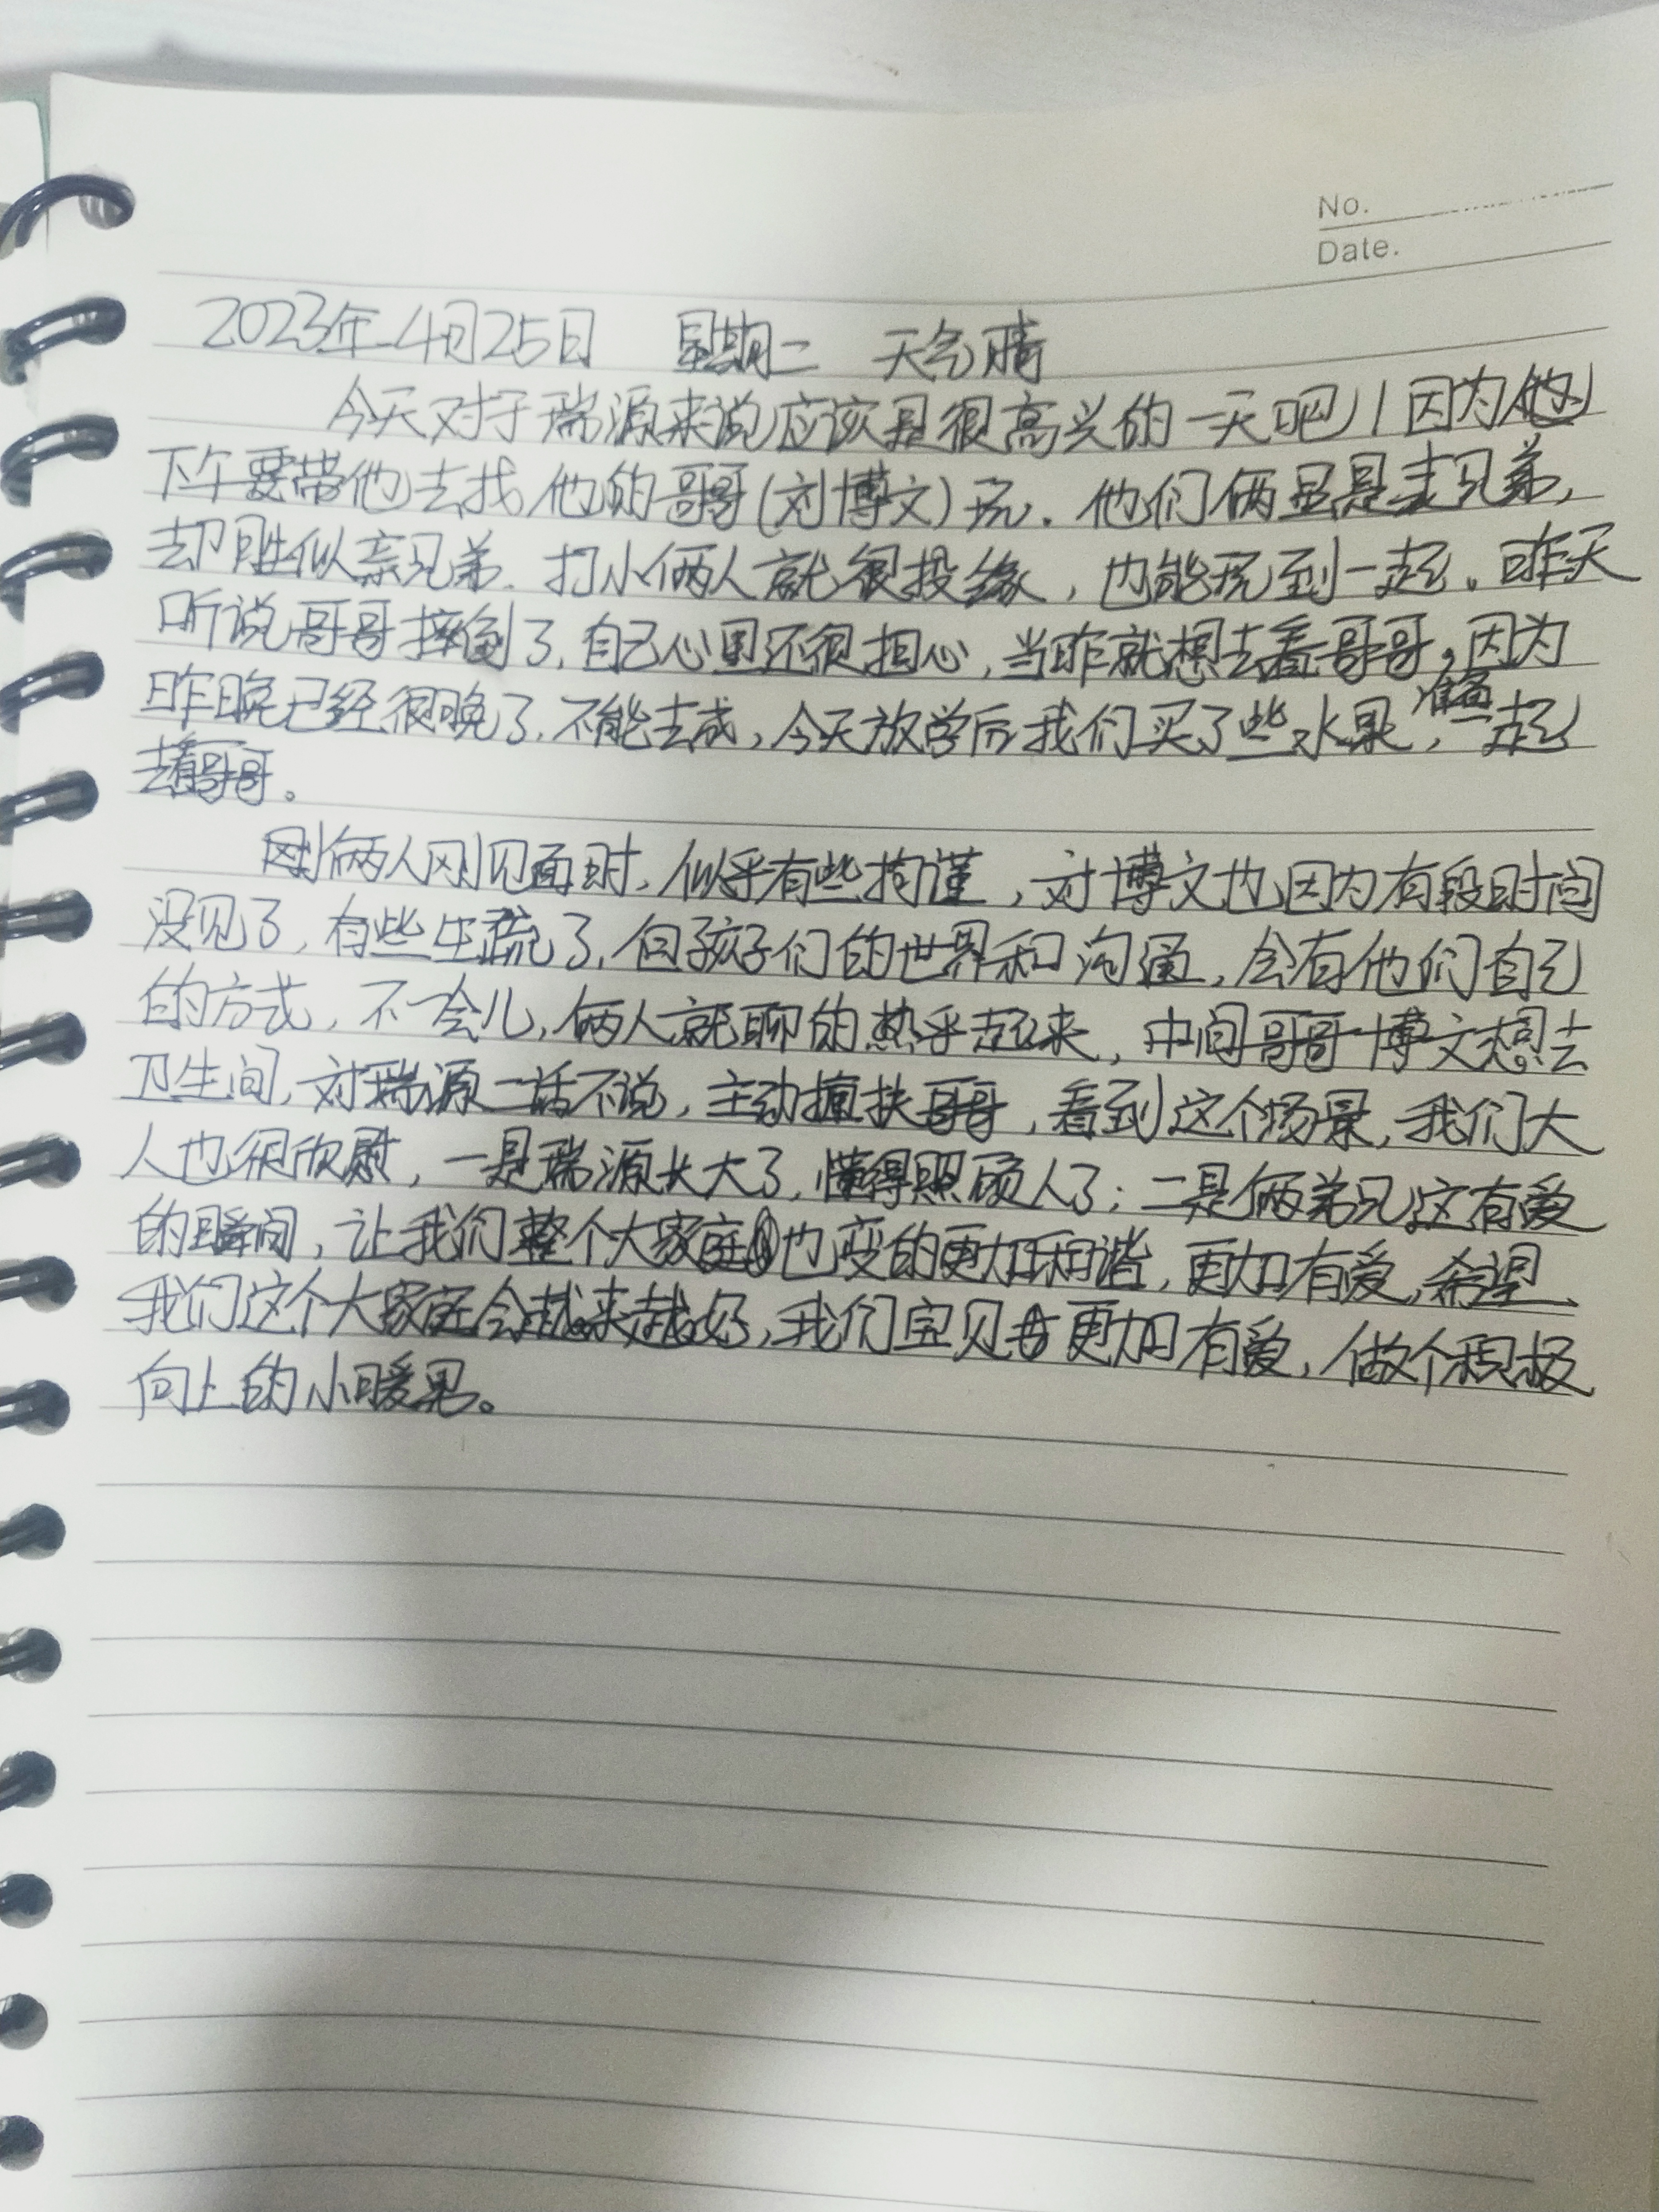 No.
Date.
2023年4月25日 星期二 天气晴
今天对于瑞源来说应该是很高兴的一天吧！因为他
下午要带他去找他的哥哥(刘博文)玩. 他们俩虽是表兄弟,
却胜似亲兄弟. 打小俩人就很投缘, 也能玩到一起。昨天
听说哥哥摔倒了, 自己心里还很担心, 当昨就想去看哥哥,因为
昨晚已经很晚了, 不能去成, 今天放学后我们买了些水果, 准备一起
去看哥哥。
俩人刚见面时, 似乎有些拘谨, 对博文也因为有段时间
没见了, 有些生疏了, 但孩子们的世界和沟通, 会有他们自己
的方式, 不一会儿, 俩人就聊的热乎起来, 中间哥哥博文想去
卫生间, 对瑞源二话不说, 主动搀扶哥哥, 看到这个场景, 我们大
人也很欣慰, 一是瑞源长大了, 懂得照顾人了; 二是俩弟兄这有爱
的瞬间, 让我们整个大家庭也变的更加和谐, 更加有爱, 希望
我们这个大家庭会越来越好, 我们宝贝更加有爱, 做个积极
向上的小暖男。